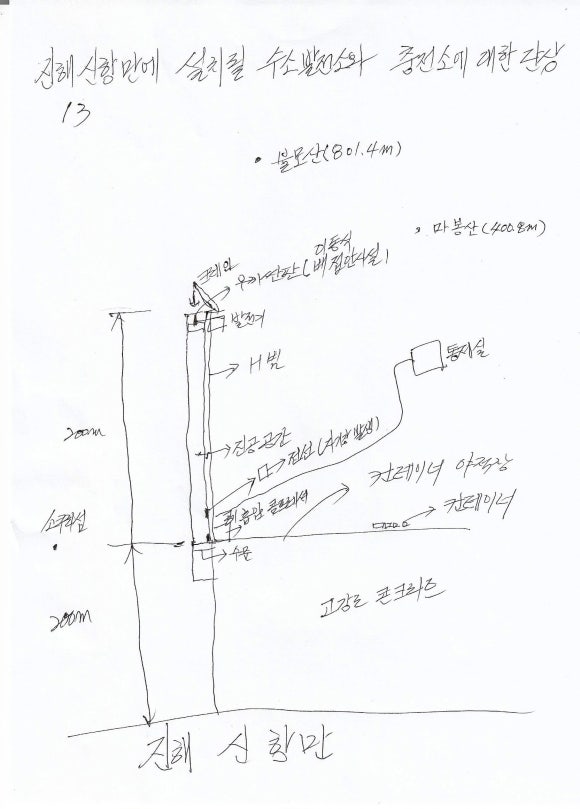 진해 신항만에 설치될 수소발전소와 충전소에 대한 단상
13
불모산(801.4m)
마봉산(400.8m)
크레인
이동식
발전기
H빔
통제실
200m
진공공간
전선(
컨테이너 야적장
컨테이너
흡관 콤프레셔
수문
200m
고강도 콘크리트
진해 신항만